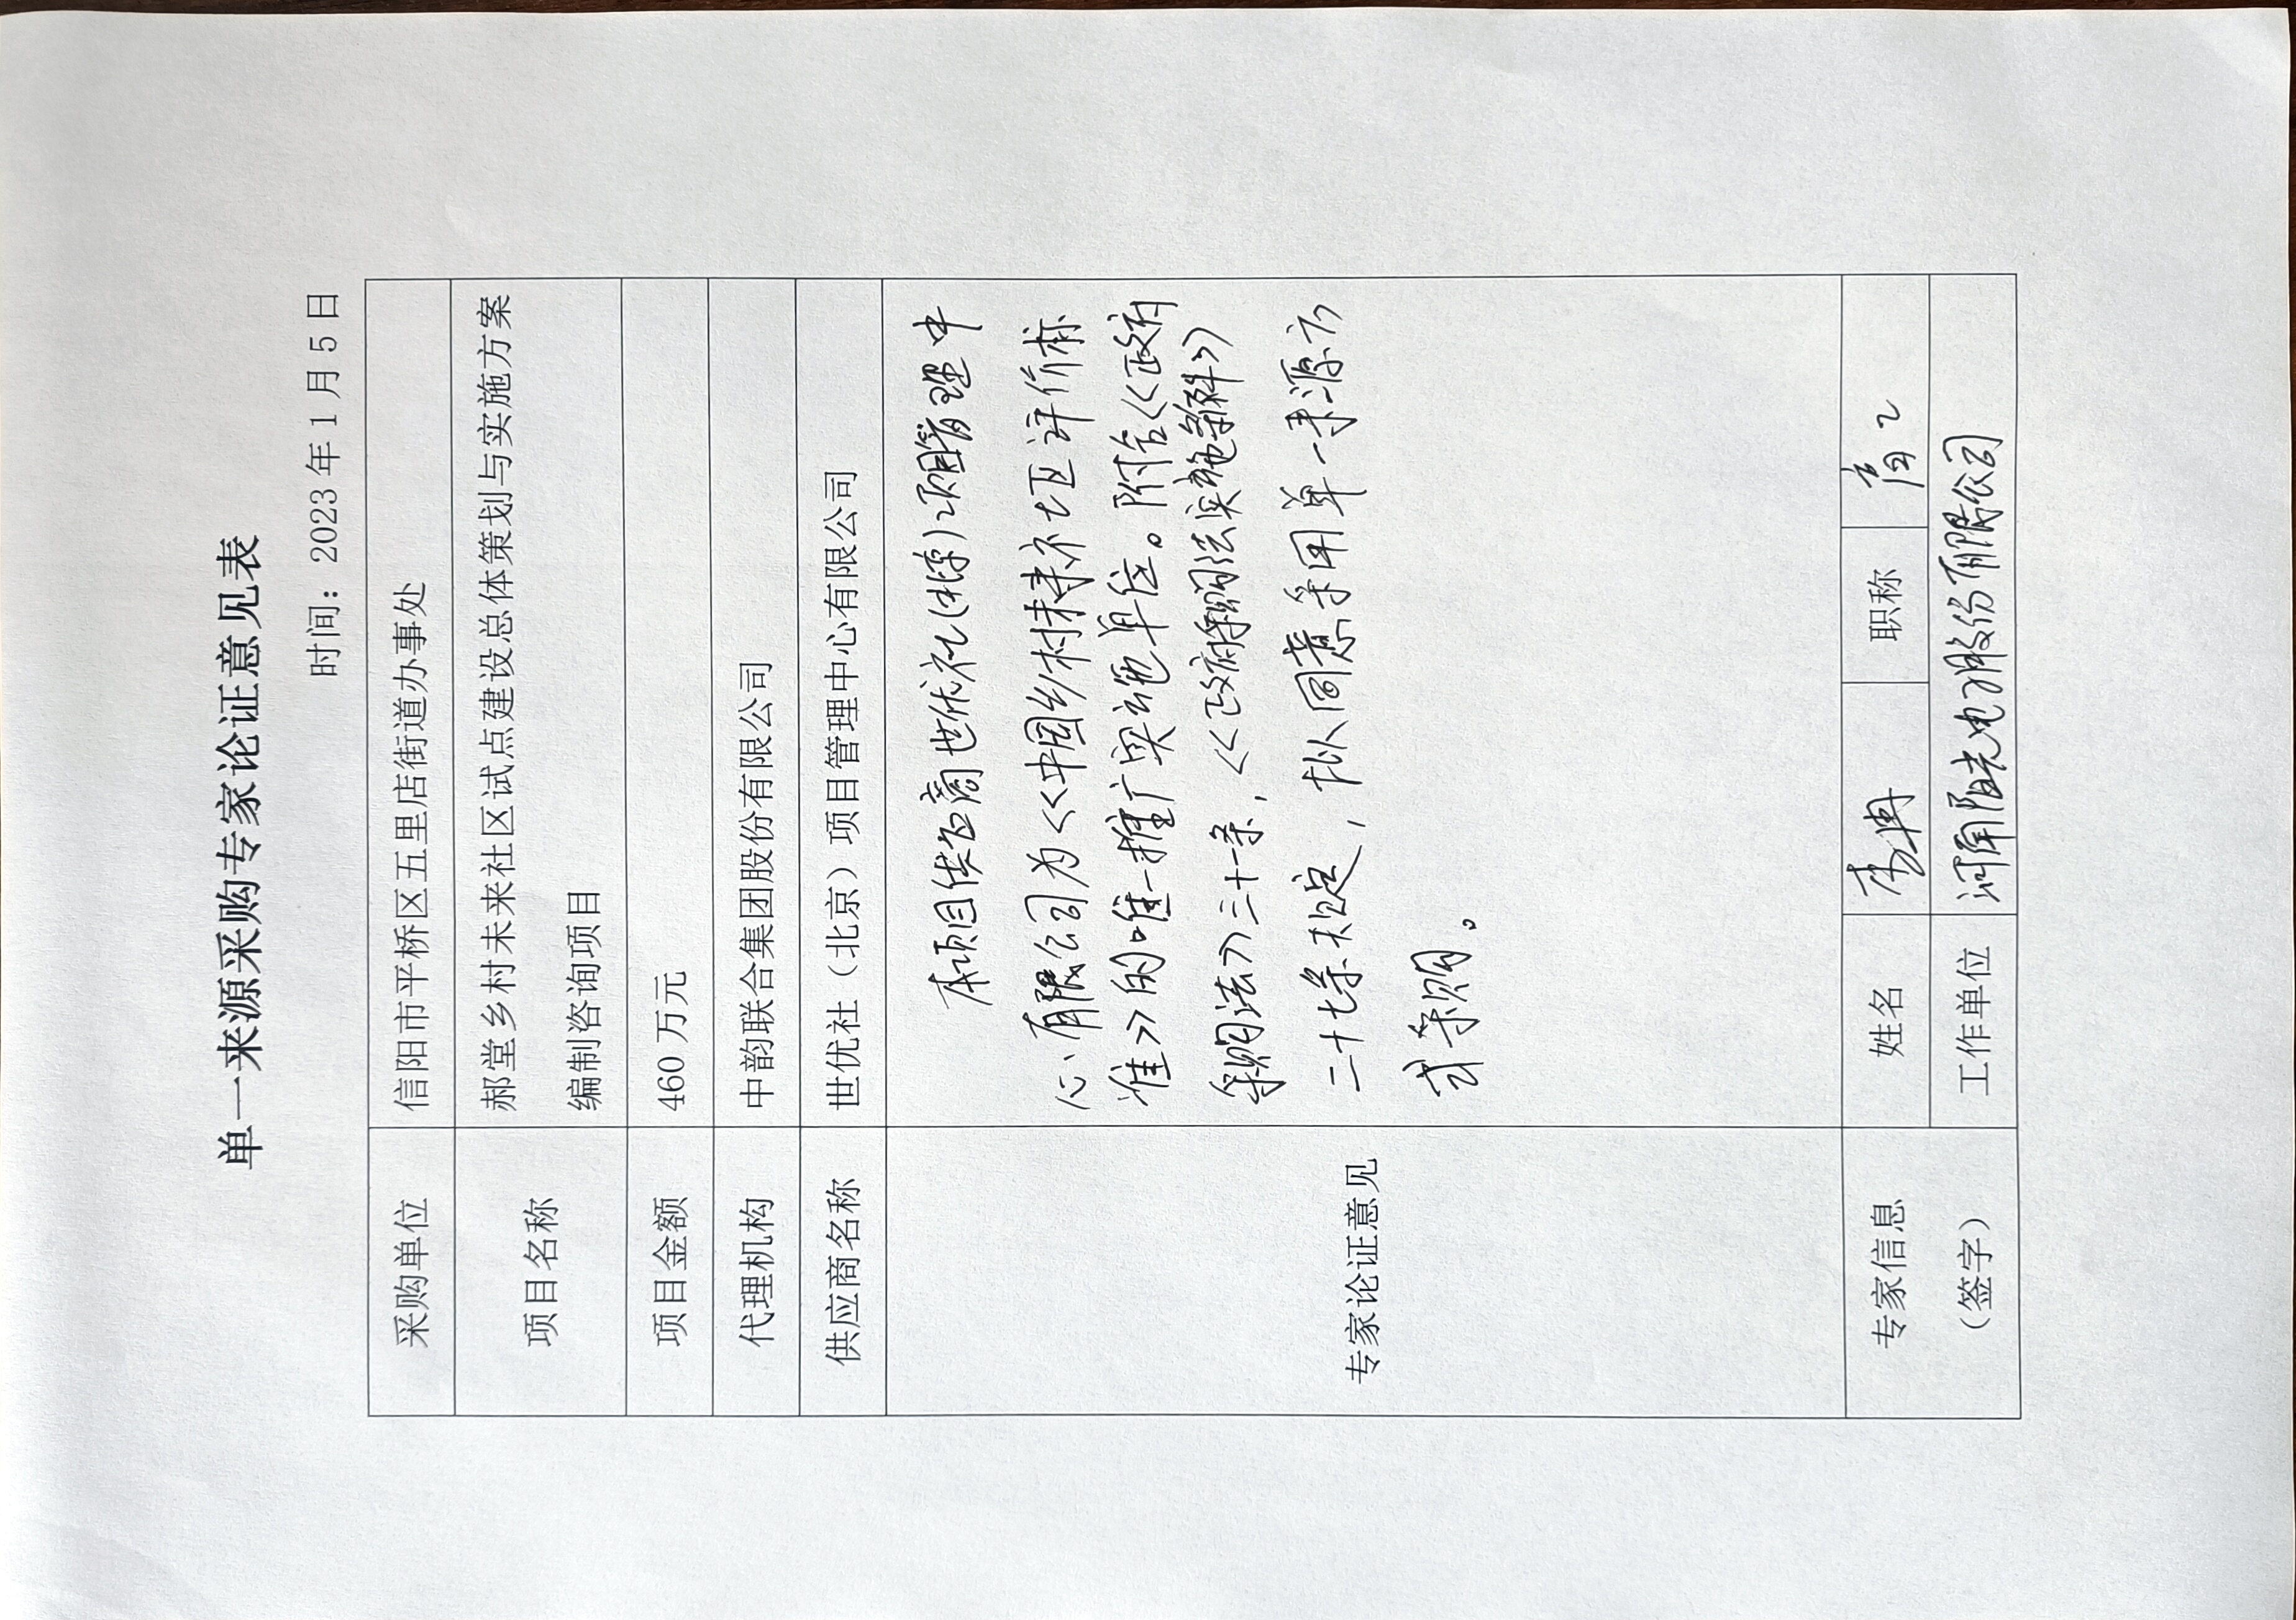 单一来源采购专家论证意见表
时间：2023年1月5日
采购单位 信阳市平桥区五里店街道办事处
项目名称 郝堂乡村未来社区试点建设总体策划与实施方案
编制咨询项目
项目金额 460万元
代理机构 中韵联合集团股份有限公司
供应商名称 世优社（北京）项目管理中心有限公司
专家论证意见
本项目供应商世优社(北京)项目管理中
心有限公司为《中国乡村未来社区评价标
准》的唯一推广实施单位。附合《政府
采购法》三十一条，《政府采购法实施条例》
二十七条规定，拟同意采用单一来源方
式采购。
专家信息
（签字）
姓名 李冉 职称 高工
工作单位 河南阳光电力股份有限公司